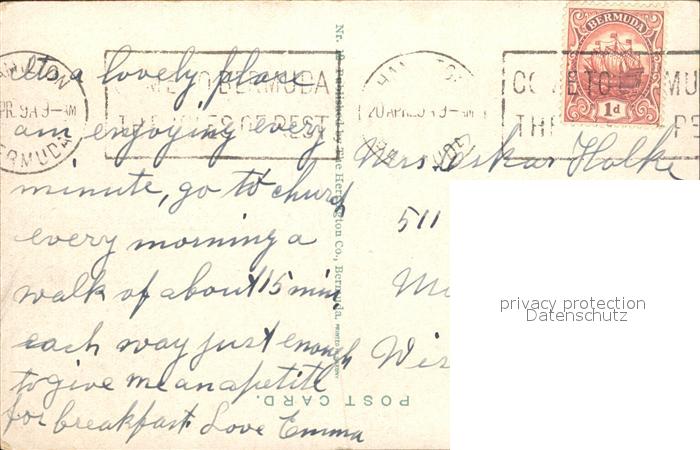 Its a lovely place
am enjoying every
minute, go to church
every morning a
walk of about 15 min
each way just enough
to give me an apetite
for breakfast. Love Emma
HAMILTON
APR. 9 A 9-AM
BERMUDA
COME TO BERMUDA
THE ISLES OF REST
Published by The Herrington Co., Bermuda.
POST CARD.
20 APR
9-AM
COME TO BERMU
THE
BERMUDA
1d
Mrs. Oskar Holke
511
Wis
privacy protection
Datenschutz